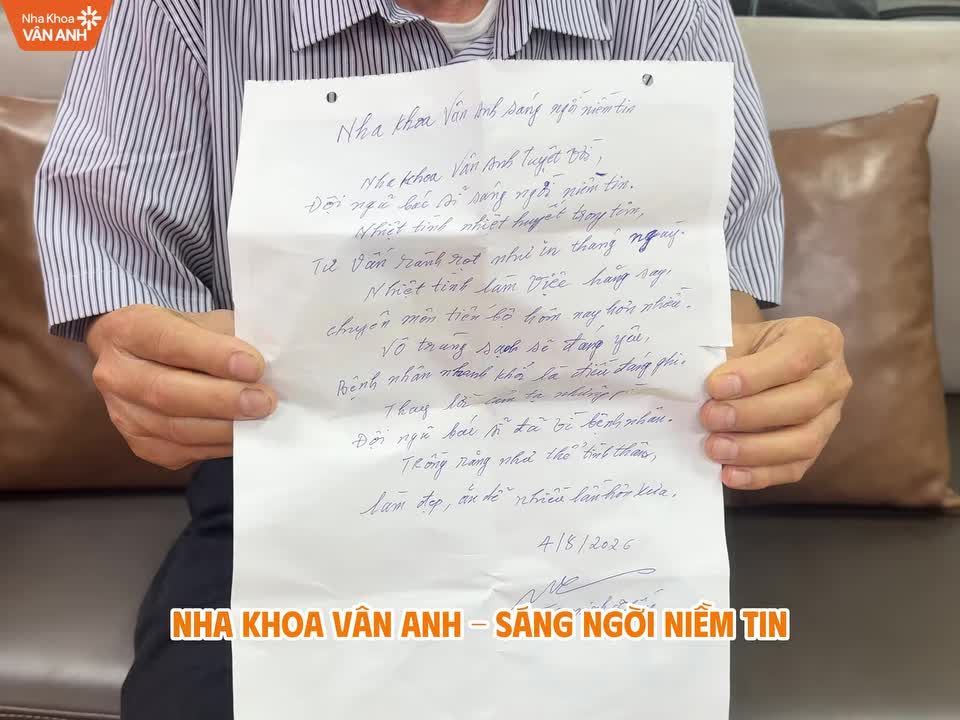 Nha Khoa
VÂN ANH
Nha khoa Vân Anh sáng ngời niềm tin
Nha khoa Vân Anh tuyệt vời,
Đội ngũ bác sĩ sáng ngời niềm tin.
Nhiệt tình nhiệt huyết trong tim,
Tư vấn rành rọt như in tháng ngày.
Nhiệt tình làm việc hăng say,
chuyên môn tiến bộ hôm nay hơn nhiều.
Vô trùng sạch sẽ đáng yêu,
Bệnh nhân nhanh khỏi là điều đáng ghi.
Thay lời cảm tạ những gì
Đội ngũ bác sĩ đã vì bệnh nhân.
Trồng răng như thể tinh thần,
làm đẹp, ăn dễ nhiều lần hơn xưa.
4/8/2026
NHA KHOA VÂN ANH – SÁNG NGỜI NIỀM TIN